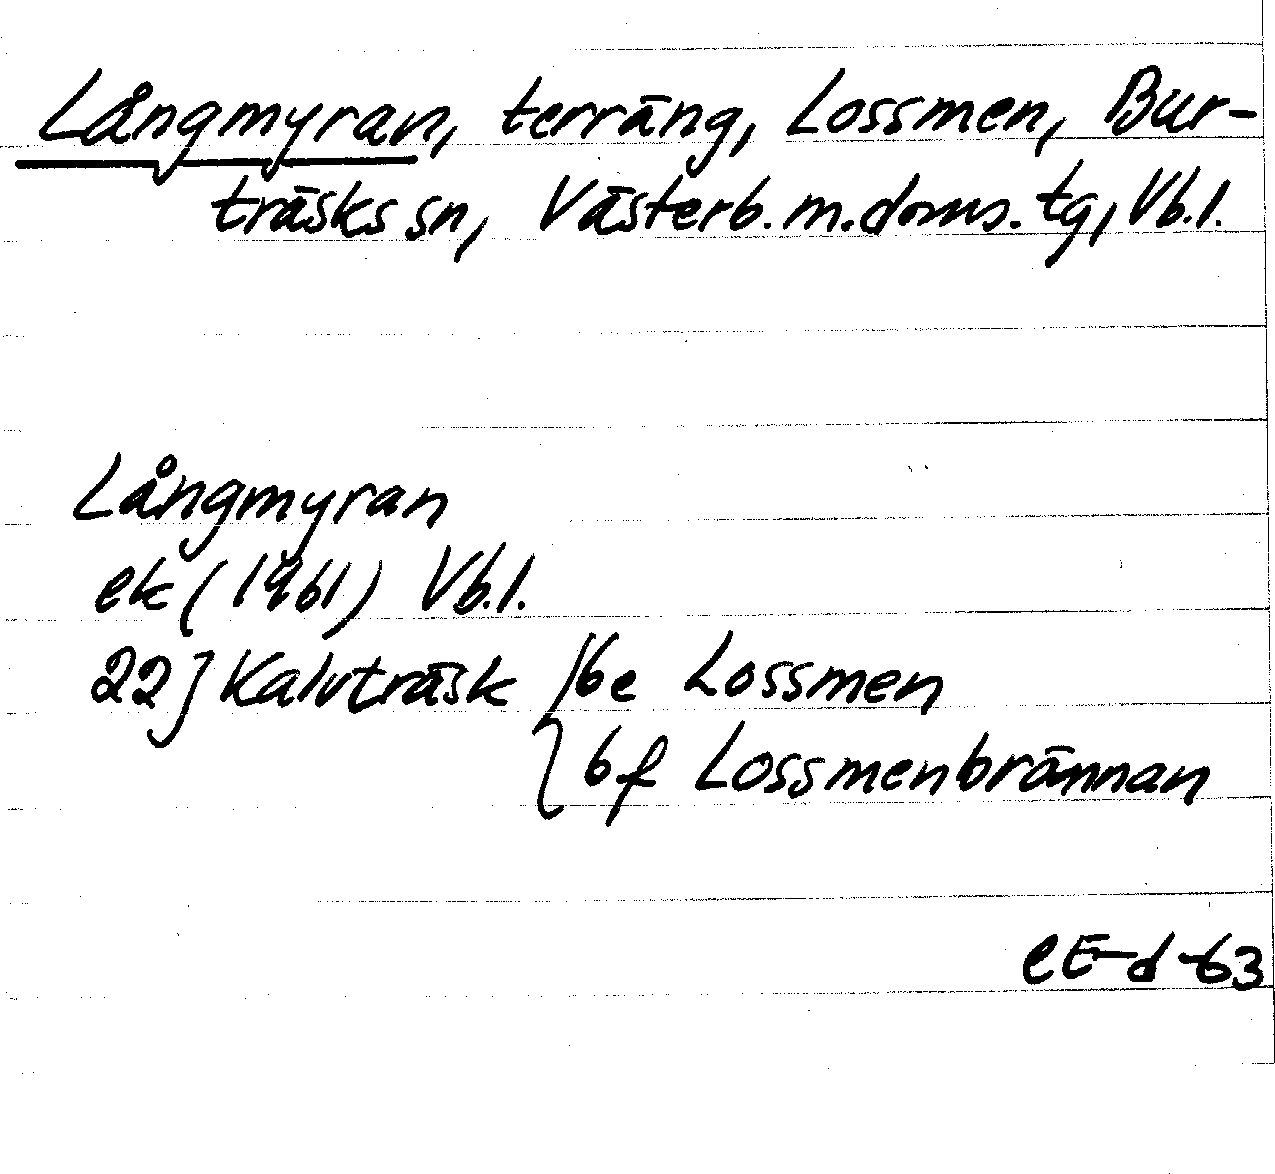 Långmyran, terräng, Lossmen, Bur-
träsks sn, Västerb. m. doms. tg, Vb.l.
Långmyran
ek (1961) Vb.l.
22J Kalvträsk / 6e Lossmen
6f Lossmenbrännan
CE-d-63